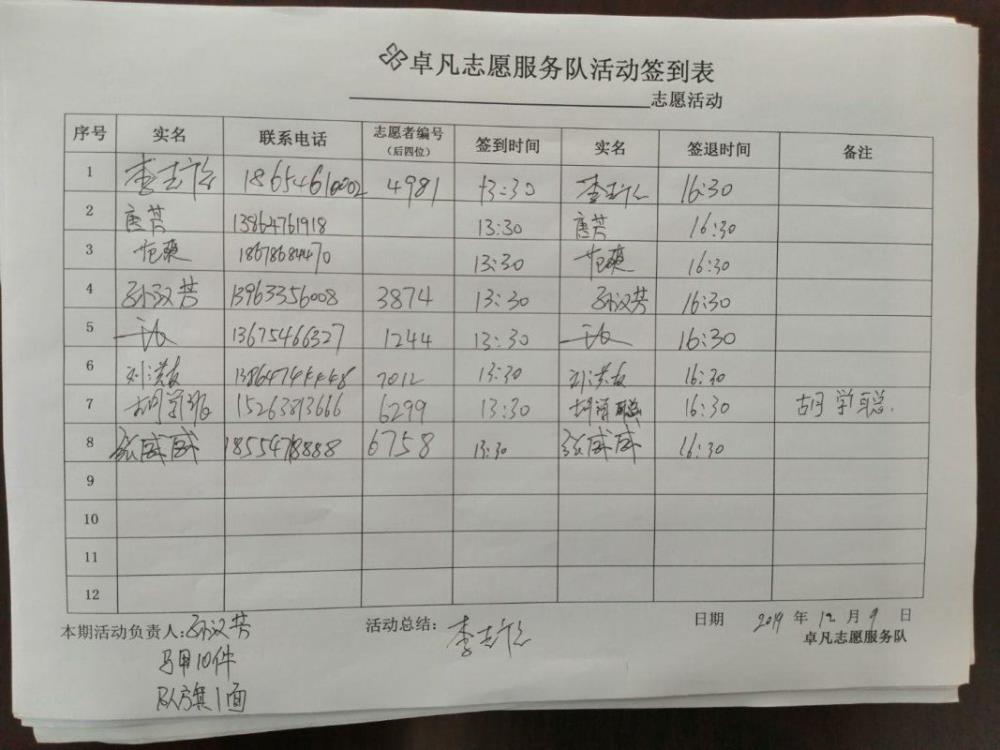 卓凡志愿服务队活动签到表
志愿活动
序号 实名 联系电话 志愿者编号（后四位） 签到时间 实名 签退时间 备注
1 李志 18654610002 4981 13:30 李志 16:30
2 唐芳 13864761918 13:30 唐芳 16:30
3 范爽 18678684470 13:30 范爽 16:30
4 孙汉芳 13963356008 3874 13:30 孙汉芳 16:30
5 13675466327 1244 13:30 16:30
6 刘洪友 13864744448 7012 13:30 刘洪友 16:30
7 胡学聪 15263813666 6299 13:30 胡学聪 16:30 胡学聪
8 张威威 18554718888 6758 13:30 张威威 16:30
9
10
11
12
本期活动负责人:孙汉芳 活动总结: 李志 日期 2019 年 12 月 9 日
卓凡志愿服务队
马甲10件
队旗1面